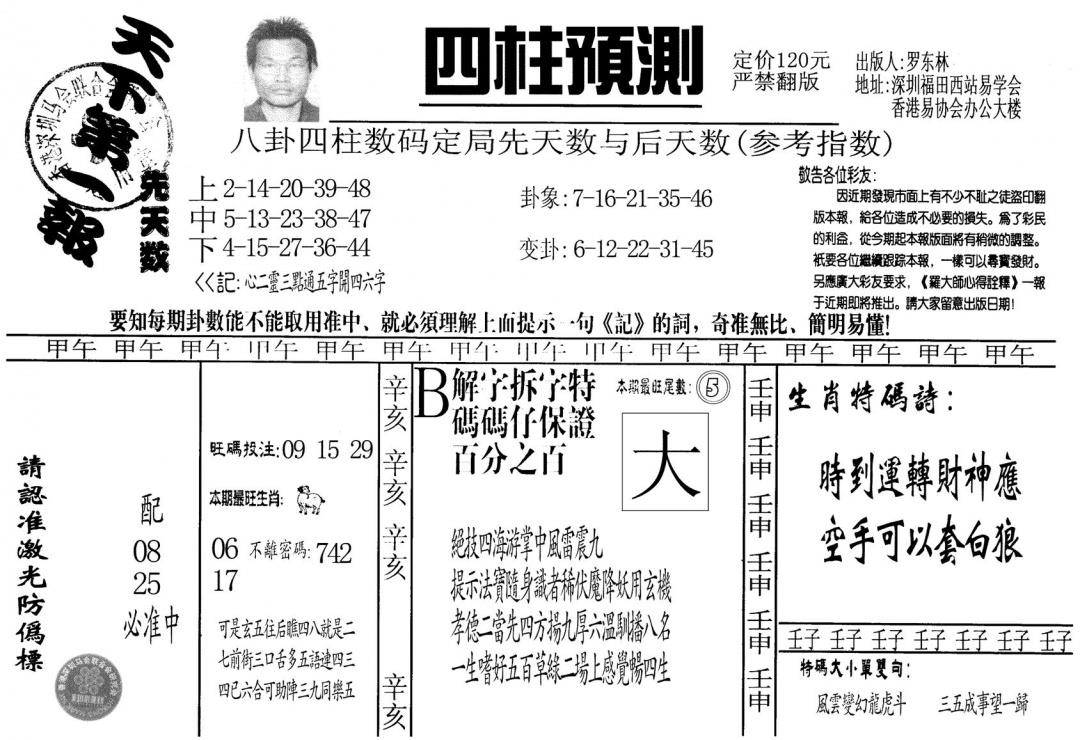 天下第一報
四柱預測
定价120元
严禁翻版
出版人:罗东林
地址:深圳福田西站易学会
香港易协会办公大楼
八卦四柱数码定局先天数与后天数(参考指数)
先天数
上2-14-20-39-48
中5-13-23-38-47
下4-15-27-36-44
<<記:心二靈三點通五字開四六字
卦象:7-16-21-35-46
变卦:6-12-22-31-45
敬告各位彩友:
因近期發現市面上有不少不耻之徒盜印翻
版本報,給各位造成不必要的損失。爲了彩民
的利益,從今期起本報版面將有稍微的調整。
衹要各位繼續跟踪本報,一樣可以尋寶發財。
另應廣大彩友要求,《羅大師心得詮釋》一報
于近期即將推出。請大家留意出版日期!
要知每期卦數能不能取用准中、就必須理解上面提示一句《記》的詞,奇准無比、簡明易懂!
甲午 甲午 甲午 甲午 甲午 甲午 甲午 甲午 甲午 甲午 甲午 甲午 甲午 甲午 甲午
請認准激光防僞標
配
08
25
必准中
旺碼投注:09 15 29
本期最旺生肖:
06 不離密碼:742
17
可是玄五往后瞧四八就是二
七前街三口舌多五語連四三
四已六合可助陣三九同樂五
辛亥
辛亥
辛亥
辛亥
B解字拆字特
碼碼仔保證
百分之百
本期最旺尾數:5
大
絕技四海游掌中風雷震九
提示法寶隨身識者稀伏魔降妖用玄機
孝德二當先四方揚九厚六溫馴播八名
一生嗜好五百草綠二場上感覺暢四生
壬申
壬申
壬申
壬申
壬申
壬申
生肖特碼詩:
時到運轉財神應
空手可以套白狼
壬子 壬子 壬子 壬子 壬子 壬子 壬子
特碼大小單雙句:
風雲變幻龍虎斗 三五成事望一歸